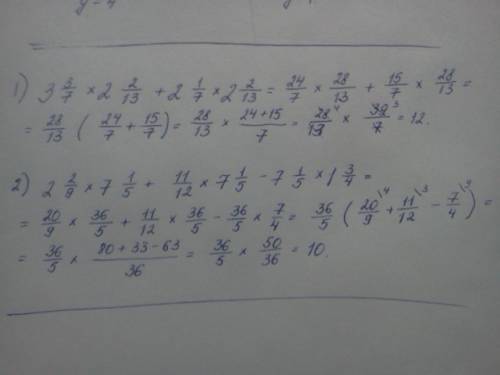 y = 4
1) 3 3/7 × 2 2/13 + 2 1/7 × 2 2/13 = 24/7 × 28/13 + 15/7 × 28/13 =
= 28/13 ( 24/7 + 15/7 ) = 28/13 × (24+15)/7 = 28/13 ⁴ × 39/7 ³ = 12.
2) 2 2/9 × 7 1/5 + 11/12 × 7 1/5 − 7 1/5 × 1 3/4 =
= 20/9 × 36/5 + 11/12 × 36/5 − 36/5 × 7/4 = 36/5 ( 20/9 \4 + 11/12 \3 − 7/4 \9 ) =
= 36/5 × (80+33−63)/36 = 36/5 × 50/36 = 10.